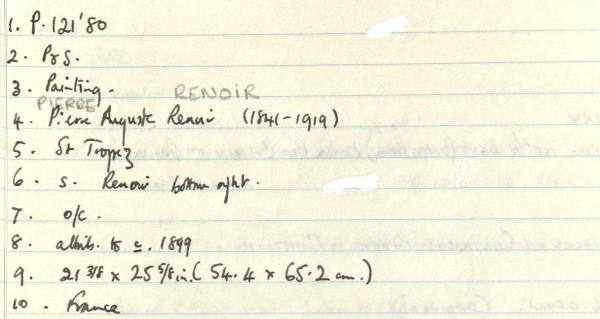 1. P.121'80
2. P & S.
3. Painting.
PIERRE RENOIR
4. Pierre Auguste Renoir (1841-1919)
5. St Tropez
6. s. Renoir bottom right.
7. o/c.
8. attrib. to c. 1899
9. 21 3/8 x 25 5/8 in. (54.4 x 65.2 cm.)
10. France